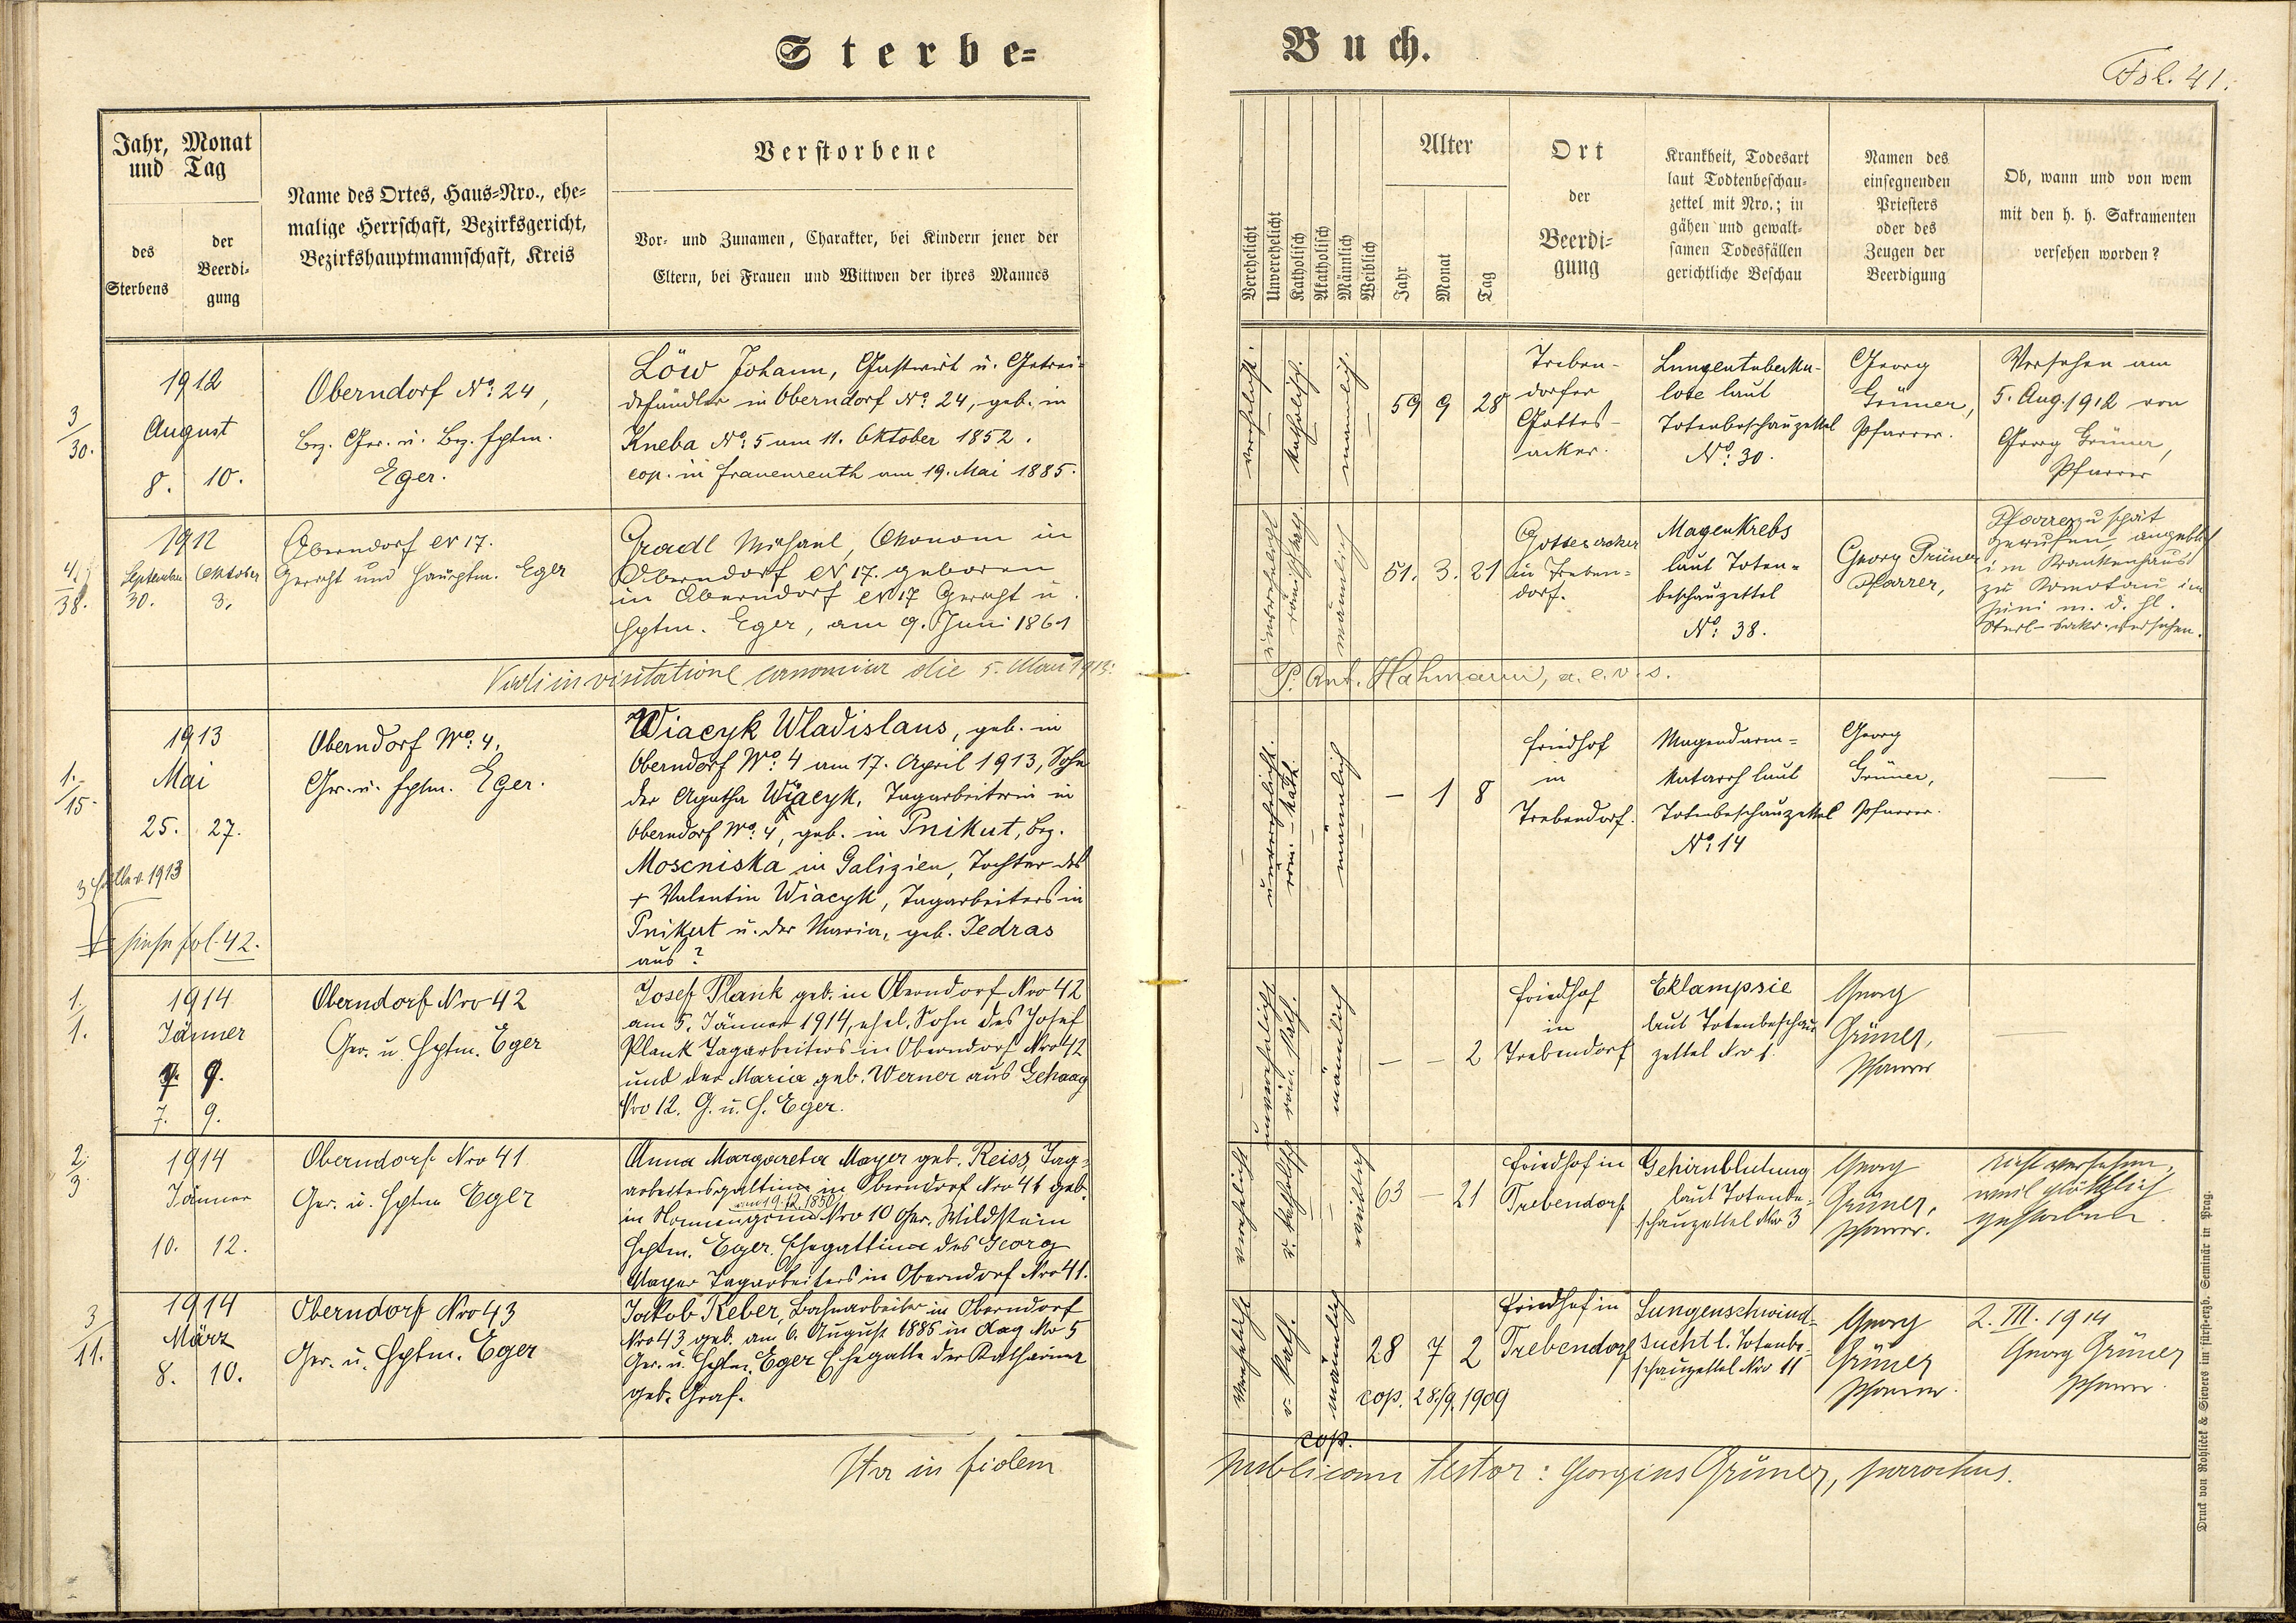 Sterbe=
Buch.
Fol. 41.
Jahr, Monat
und Tag
des
Sterbens
der
Beerdi-
gung
Name des Ortes, Haus=Nro., ehe=
malige Herrschaft, Bezirksgericht,
Bezirkshauptmannschaft, Kreis
Verstorbene
Vor- und Zunamen, Charakter, bei Kindern jener der
Eltern, bei Frauen und Wittwen der ihres Mannes
Verehelicht
Unverehelicht
Katholisch
Akatholisch
Männlich
Weiblich
Alter
Jahr
Monat
Tag
Ort
der
Beerdi=
gung
Krankheit, Todesart
laut Todtenbeschau-
zettel mit Nro.; in
gähen und gewalt-
samen Todesfällen
gerichtliche Beschau
Namen des
einsegnenden
Priesters
oder des
Zeugen der
Beerdigung
Ob, wann und von wem
mit den h. h. Sakramenten
versehen worden?
3/30.
1912
August
8. 10.
Oberndorf No. 24,
Bez. Ger. u. Bez. Hptm.
Eger.
Löw Johann, Gastwirt u. Getrei-
dehändler in Oberndorf No. 24, geb. in
Kneba No. 5 am 11. Oktober 1852.
cop. in Frauenreuth am 19. Mai 1885.
verehelicht.
katholisch.
männlich.
59 9 28
Treben-
dorfer
Gottes-
acker.
Lungentuberku-
lose laut
Totenbeschauzettel
No. 30.
Georg
Grüner,
Pfarrer.
Versehen am
5. Aug. 1912 von
Georg Grüner,
Pfarrer
4./38.
1912
September Oktober
30. 3.
Oberndorf N 17.
Gericht und Hauptm. Eger
Gradl Michael, Ökonom in
Oberndorf N 17. geboren
in Oberndorf N 17 Gericht u.
Hptm. Eger, am 9. Juni 1861
unverehelicht
römisch kath
männlich
51. 3. 21
Gottesacker
in Treben=
dorf.
Magenkrebs
laut Toten=
beschauzettel
No. 38.
Georg Grüner
Pfarrer,
Pfarrer zu spät
gerufen, angeblich
im Krankenhaus
zu Komotau im
Juni m. d. hl.
Sterb-Sakr. versehen.
Vidi in visitatione canonica die 5. Mai 1913.
P. Ant. Hahmann, a. e. v. s.
1./15.
1913
Mai
25. 27.
3 Fälle v. 1913
siehe fol. 42.
Oberndorf No. 4.
Ger. u. Hptm. Eger.
Wiacyk Wladislaus, geb. in
Oberndorf No. 4 am 17. April 1913, Sohn
der Agatha Wiacyk, Tagarbeiterin in
Oberndorf No. 4, geb. in Pnikut, Bez.
Moscniska in Galizien, Tochter des
+ Valentin Wiacyk, Tagarbeiters in
Pnikut u. der Maria, geb. Jedras
aus ?
unverehelicht.
röm.-kath.
männlich
— 1 8
Friedhof
in
Trebendorf.
Magendarm=
katarrh laut
Totenbeschauzettel
No. 14
Georg
Grüner,
Pfarrer.
—
1./1.
1914
Jänner
9.
7. 9.
Oberndorf Nro 42
Ger. u. Hptm. Eger
Josef Plank geb. in Oberndorf Nro 42
am 5. Jänner 1914, ehel. Sohn des Josef
Plank Tagarbeiters in Oberndorf Nro 42
und der Maria geb. Werner aus Gehaag
Nro 12. G. u. H. Eger.
unverehelicht
röm. kath.
männlich
— — 2
Friedhof
in
Trebendorf
Eklampsie
laut Totenbeschau
zettel Nro 1.
Georg
Grüner,
Pfarrer
—
2./3
1914
Jänner
10. 12.
Oberndorf Nro 41
Ger. u. Hptm Eger
Anna Margareta Mayer geb. Reiss, Tag=
arbeitersgattin in Oberndorf Nro 41 geb.
am 19.12.1850
in Nonnengrün Nro 10 Ger. Wildstein
Hptm. Eger. Ehegattin des Georg
Mayer Tagarbeiters in Oberndorf Nro 41.
verehelicht
r. katholisch
weiblich
63 — 21
Friedhof in
Trebendorf
Gehirnblutung
laut Totenbe=
schauzettel Nro 3
Georg
Grüner,
Pfarrer.
nicht versehen,
weil plötzlich
gestorben.
3/11.
1914
März
8. 10.
Oberndorf Nro 43
Ger. u. Hptm. Eger
Jakob Reber, Bahnarbeiter in Oberndorf
Nro 43 geb. am 6. August 1885 in Aag Nro 5
Ger. u. Hptm. Eger Ehegatte der Katharina
geb. Graf.
Verehelicht
r. kath.
männlich
28 7 2
cop. 28./9. 1909
Friedhof in
Trebendorf
Lungenschwind=
sucht l. Totenbe=
schauzettel Nro 11
Georg
Grüner
Pfarrer.
2. III. 1914
Georg Grüner
Pfarrer.
cop.
Ita in fidem
publicam testor: Georgius Grüner, parochus.
Druck von Rohlíček & Sievers im fürst-erzb. Seminär in Prag.